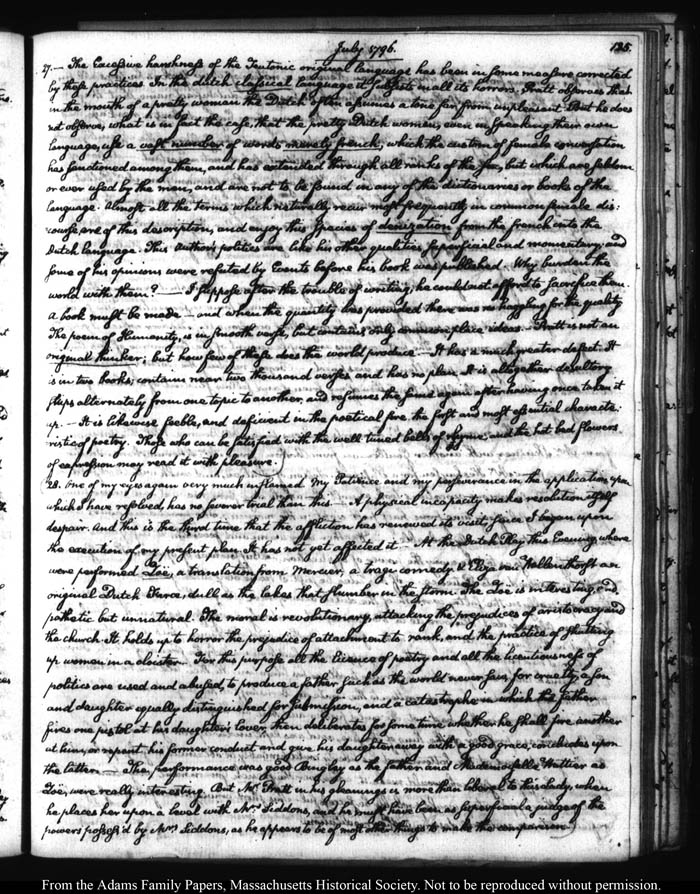 July 1796.
125.
27.— The Excessive harshness of the Teutonic original language has been in some measure corrected
by these practices. In the dutch classical language it subsists in all its horrors. Pratt observes that
in the mouth of a pretty woman the Dutch often assumes a tone far from unpleasant. But he does
not observe, what is in fact the case, that the pretty Dutch women, even in speaking their own
language, use a vast number of words merely french, which the custom of female conversation
has sanctioned among them, and has extended through all ranks of the sex, but which are seldom
or ever used by the men, and are not to be found in any of the dictionaries or books of the
language. Almost all the terms which naturally recur most frequently in common female dis:
course, are of this description, and enjoy this species of denization from the french into the
Dutch language. This Author's politics are like his other qualities superficial and momentary, and
some of his opinions were refuted by Events before his book was published. Why burden the
world with them? — I suppose after the trouble of writing, he could not afford to sacrifice them.
A book must be made — and when the quantity was provided there was no haggling for the quality
The poem of Humanity, is in smooth verse, but contains only common place ideas. — Pratt is not an
original thinker; but how few of these does the world produce — It has a much greater defect. It
is in two books; contains near two thousand verses and has no plan. It is altogether desultory
skips alternately from one topic to another, and resumes the same again after having once taken it
up. — It is likewise feeble, and deficient in the poetical fire, the first and most essential characte:
ristic of poetry. Those who can be satisfied with the well tuned bells of rhyme, and the hot bed flowers
of expression may read it with pleasure.
28. One of my eyes again very much inflamed. My Patience and my perseverance in the application upon
which I have resolved, has no severer trial than this. — A physical incapacity makes resolution itself
despair. And this is the third time that the affliction has renewed its visit, since I began upon
the execution of my present plan. It has not yet affected it — At the Dutch Play this Evening, where
were performed Zoë, a translation from Mercier, a tragi-comedy, & Eliz. van Wallenthorst an
original Dutch Farce, dull as the lakes that slumber in the storm. The Zoë is interesting, and
pathetic but unnatural. The moral is revolutionary, attacking the prejudices of aristocracy and
the church. It holds up to horror the prejudice of attachment to rank, and the practice of shutting
up women in a cloister. For this purpose all the licence of poetry and all the licentiousness of
politics are used and abused, to produce a father such as the world never saw, for cruelty, a son
and daughter equally distinguished for submission, and a catastrophe in which the father
fires one pistol at his daughter's lover, then deliberates for some time whether he shall fire another
at him, or repent his former conduct and give his daughter away with a good grace, concludes upon
the latter. — The performance was good. Bingley as the father and Mademoiselle Wattier as
Zoë, were really interesting. But Mr. Pratt in his gleanings is more than liberal to this lady, when
he places her upon a level with Mrs. Siddons, and he must have been as superficial a judge of the
powers possess'd by Mrs. Siddons, as he appears to be of most other things to make the comparison.
From the Adams Family Papers, Massachusetts Historical Society. Not to be reproduced without permission.